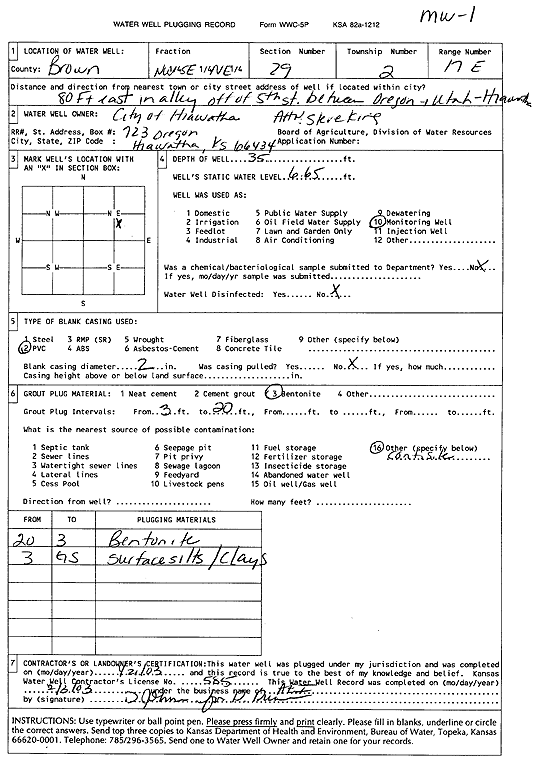 MW-1
WATER WELL PLUGGING RECORD Form WWC-5P KSA 82a-1212
1 LOCATION OF WATER WELL: Fraction Section Number Township Number Range Number
County: Brown NW¼SE ¼NE¼ 29 2 17 E
Distance and direction from nearest town or city street address of well if located within city?
80 Ft east in alley off of 5th st. between Oregon + Utah - Hiawatha
2 WATER WELL OWNER: City of Hiawatha Attn:
RR#, St. Address, Box #: 723 Oregon Board of Agriculture, Division of Water Resources
City, State, ZIP Code : Hiawatha, KS 66434 Application Number:
3 MARK WELL'S LOCATION WITH AN "X" IN SECTION BOX:
N
N W N E
X
W E
S W S E
S
4 DEPTH OF WELL....35..........ft.
WELL'S STATIC WATER LEVEL.6.65......ft.
WELL WAS USED AS:
1 Domestic 5 Public Water Supply 9 Dewatering
2 Irrigation 6 Oil Field Water Supply 10 Monitoring Well
3 Feedlot 7 Lawn and Garden Only 11 Injection Well
4 Industrial 8 Air Conditioning 12 Other....................
Was a chemical/bacteriological sample submitted to Department? Yes....No X..
If yes, mo/day/yr sample was submitted....................
Water Well Disinfected: Yes...... No..X...
5 TYPE OF BLANK CASING USED:
1 Steel 3 RMP (SR) 5 Wrought 7 Fiberglass 9 Other (specify below)
2 PVC 4 ABS 6 Asbestos-Cement 8 Concrete Tile ........................
Blank casing diameter....2.....in. Was casing pulled? Yes..... No.X... If yes, how much..........
Casing height above or below land surface.................in.
6 GROUT PLUG MATERIAL: 1 Neat cement 2 Cement grout 3 Bentonite 4 Other.................
Grout Plug Intervals: From..3..ft. to.20..ft., From......ft. to ......ft., From...... to......ft.
What is the nearest source of possible contamination:
1 Septic tank 6 Seepage pit 11 Fuel storage 16 Other (specify below)
2 Sewer lines 7 Pit privy 12 Fertilizer storage
3 Watertight sewer lines 8 Sewage lagoon 13 Insecticide storage
4 Lateral lines 9 Feedyard 14 Abandoned water well
5 Cess Pool 10 Livestock pens 15 Oil well/Gas well
Direction from well? .................... How many feet? ....................
FROM TO PLUGGING MATERIALS
20 3 Bentonite
3 GS Surface silts/clays
7 CONTRACTOR'S OR LANDOWNER'S CERTIFICATION: This water well was plugged under my jurisdiction and was completed
on (mo/day/year)....1/21/03..... and this record is true to the best of my knowledge and belief. Kansas
Water Well Contractor's License No. .....585........ This Water Well Record was completed on (mo/day/year)
under the business name of
by (signature)
INSTRUCTIONS: Use typewriter or ball point pen. Please press firmly and print clearly. Please fill in blanks, underline or circle
the correct answers. Send top three copies to Kansas Department of Health and Environment, Bureau of Water, Topeka, Kansas
66620-0001. Telephone: 785/296-3565. Send one to Water Well Owner and retain one for your records.